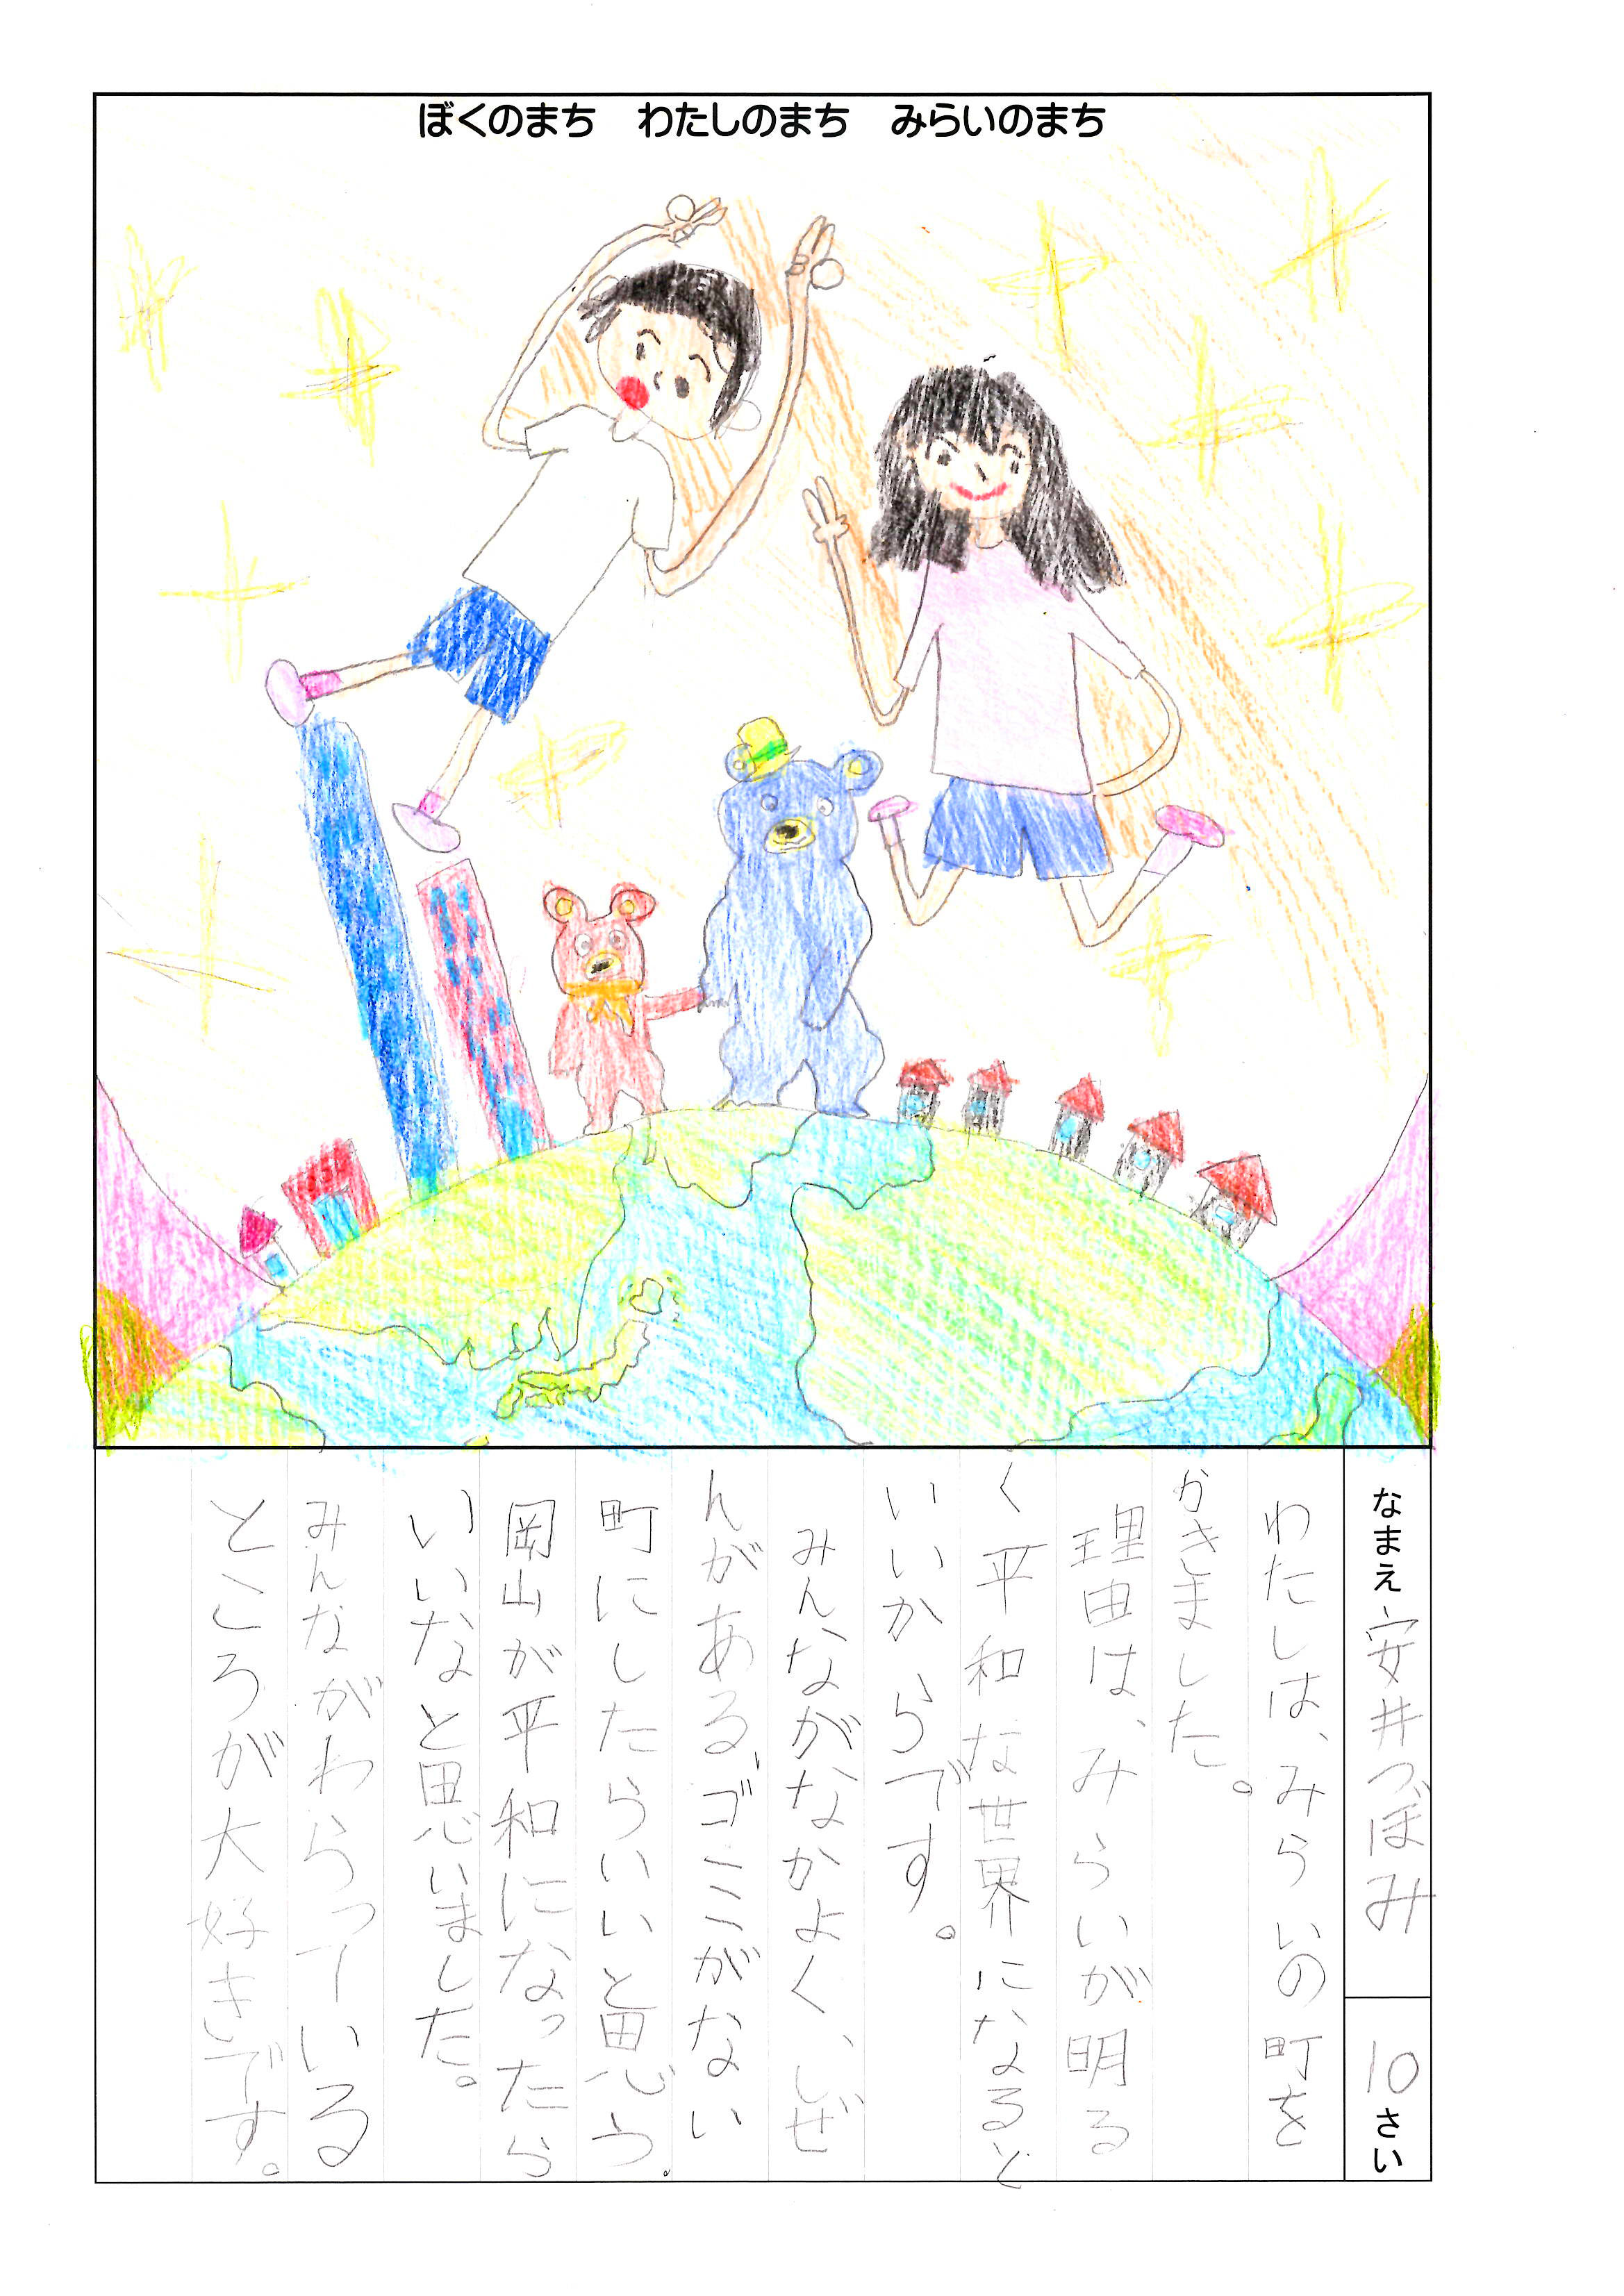 ぼくのまち　わたしのまち　みらいのまち
なまえ 安井つぼみ
10さい
わたしは、みらいの町を
かきました。
理由は、みらいが明る
く平和な世界になると
いいからです。
みんながなかよく、しぜ
んがある、ゴミがない
町にしたらいいと思う。
岡山が平和になったら
いいなと思いました。
みんながわらっている
ところが大好きです。